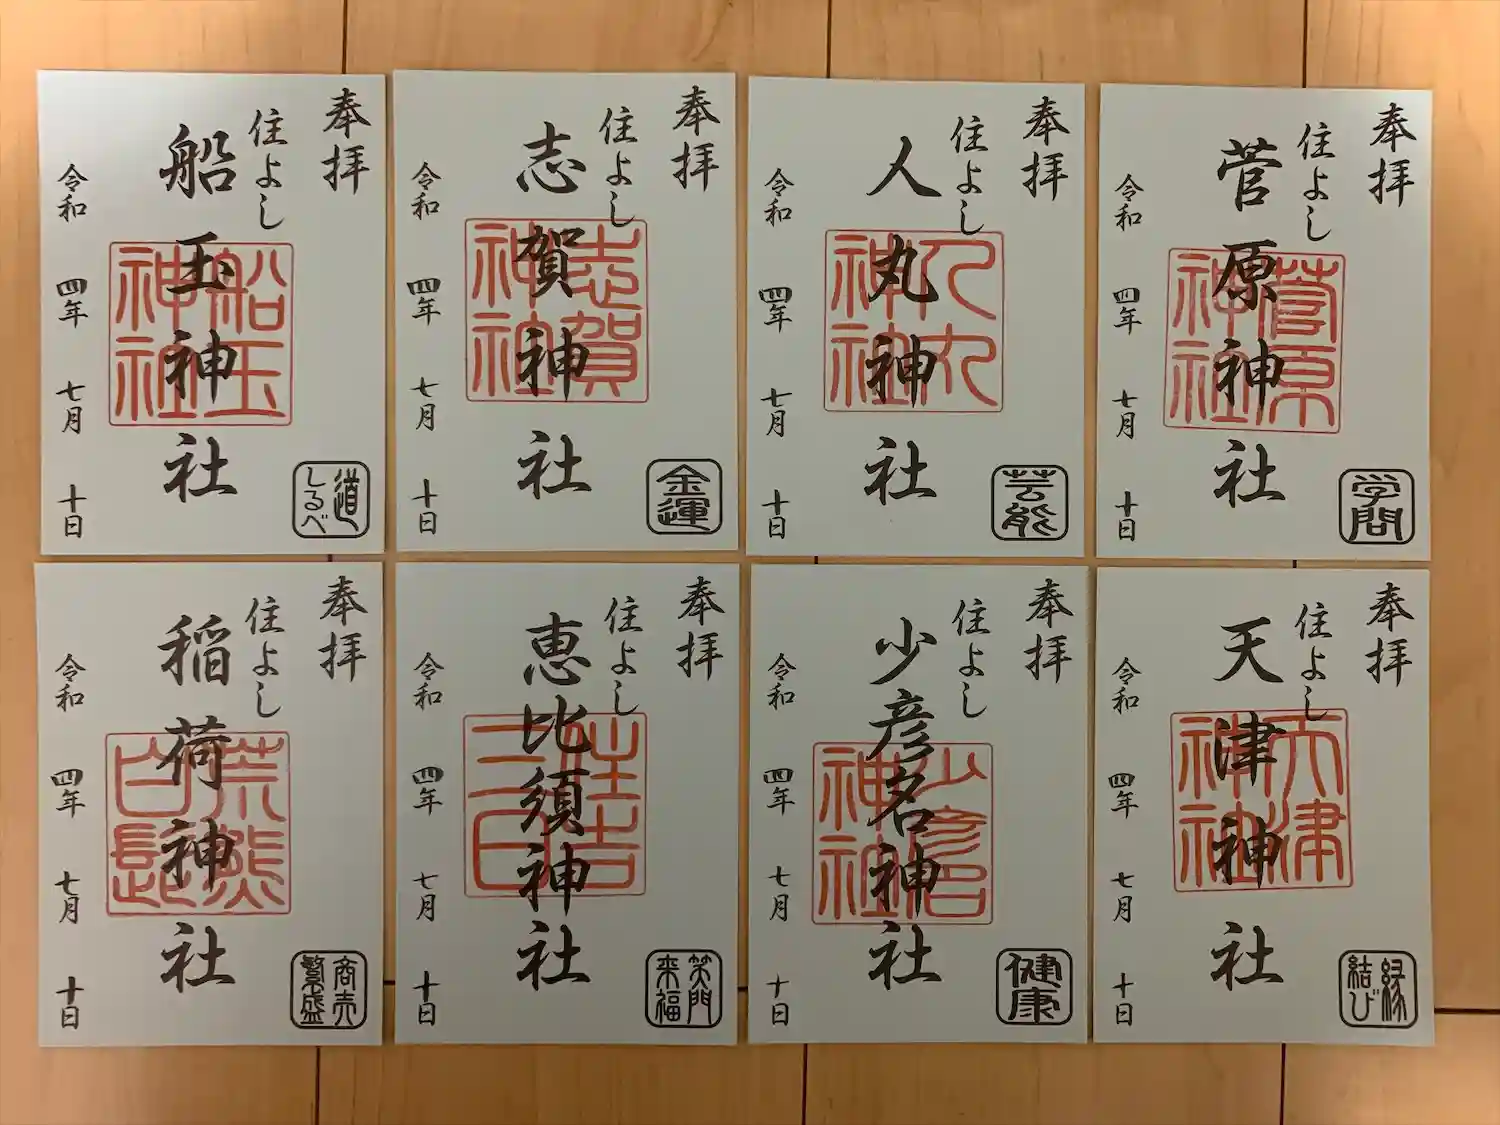 奉拝
住よし
船玉神社
令和 四年 七月 十日
船玉神社
道しるべ
奉拝
住よし
志賀神社
令和 四年 七月 十日
志賀神社
金運
奉拝
住よし
人丸神社
令和 四年 七月 十日
人丸神社
芸能
奉拝
住よし
菅原神社
令和 四年 七月 十日
菅原神社
学問
奉拝
住よし
稲荷神社
令和 四年 七月 十日
荒熊白髭
商売繁盛
奉拝
住よし
恵比須神社
令和 四年 七月 十日
住吉三日
笑門来福
奉拝
住よし
少彦名神社
令和 四年 七月 十日
少彦名神社
健康
奉拝
住よし
天津神社
令和 四年 七月 十日
天津神社
縁結び